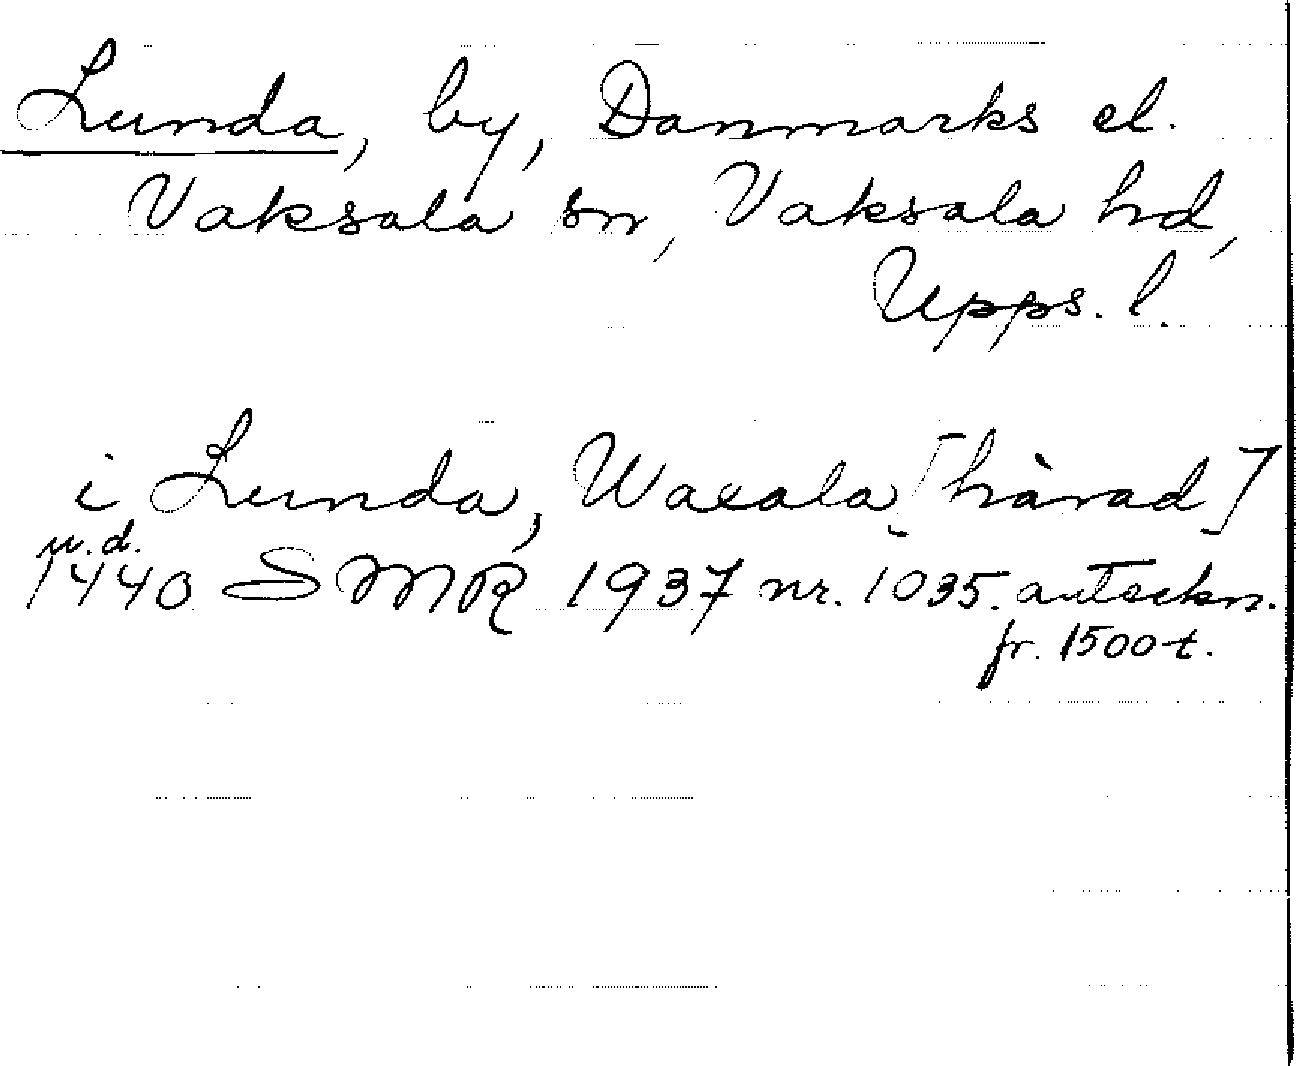 Lunda, by, Danmarks el.
Vaksala sn, Vaksala hd,
Upps. l.
i Lunda, Waxala [hàrad]
u.d.
1440 SMR 1937 nr. 1035. anteckn.
fr. 1500-t.